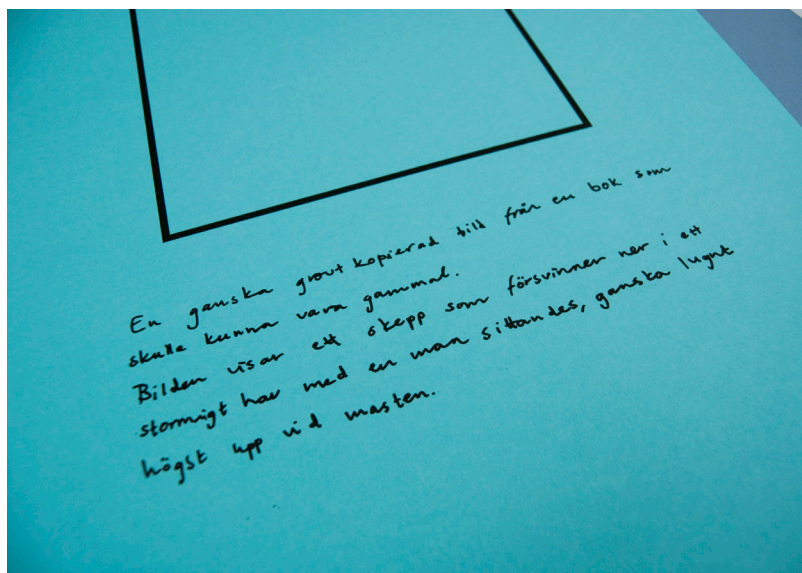 En ganska grovt kopierad bild från en bok som
skulle kunna vara gammal.
Bilden visar ett skepp som försvinner ner i ett
stormigt hav med en man sittandes, ganska lugnt
högst upp vid masten.